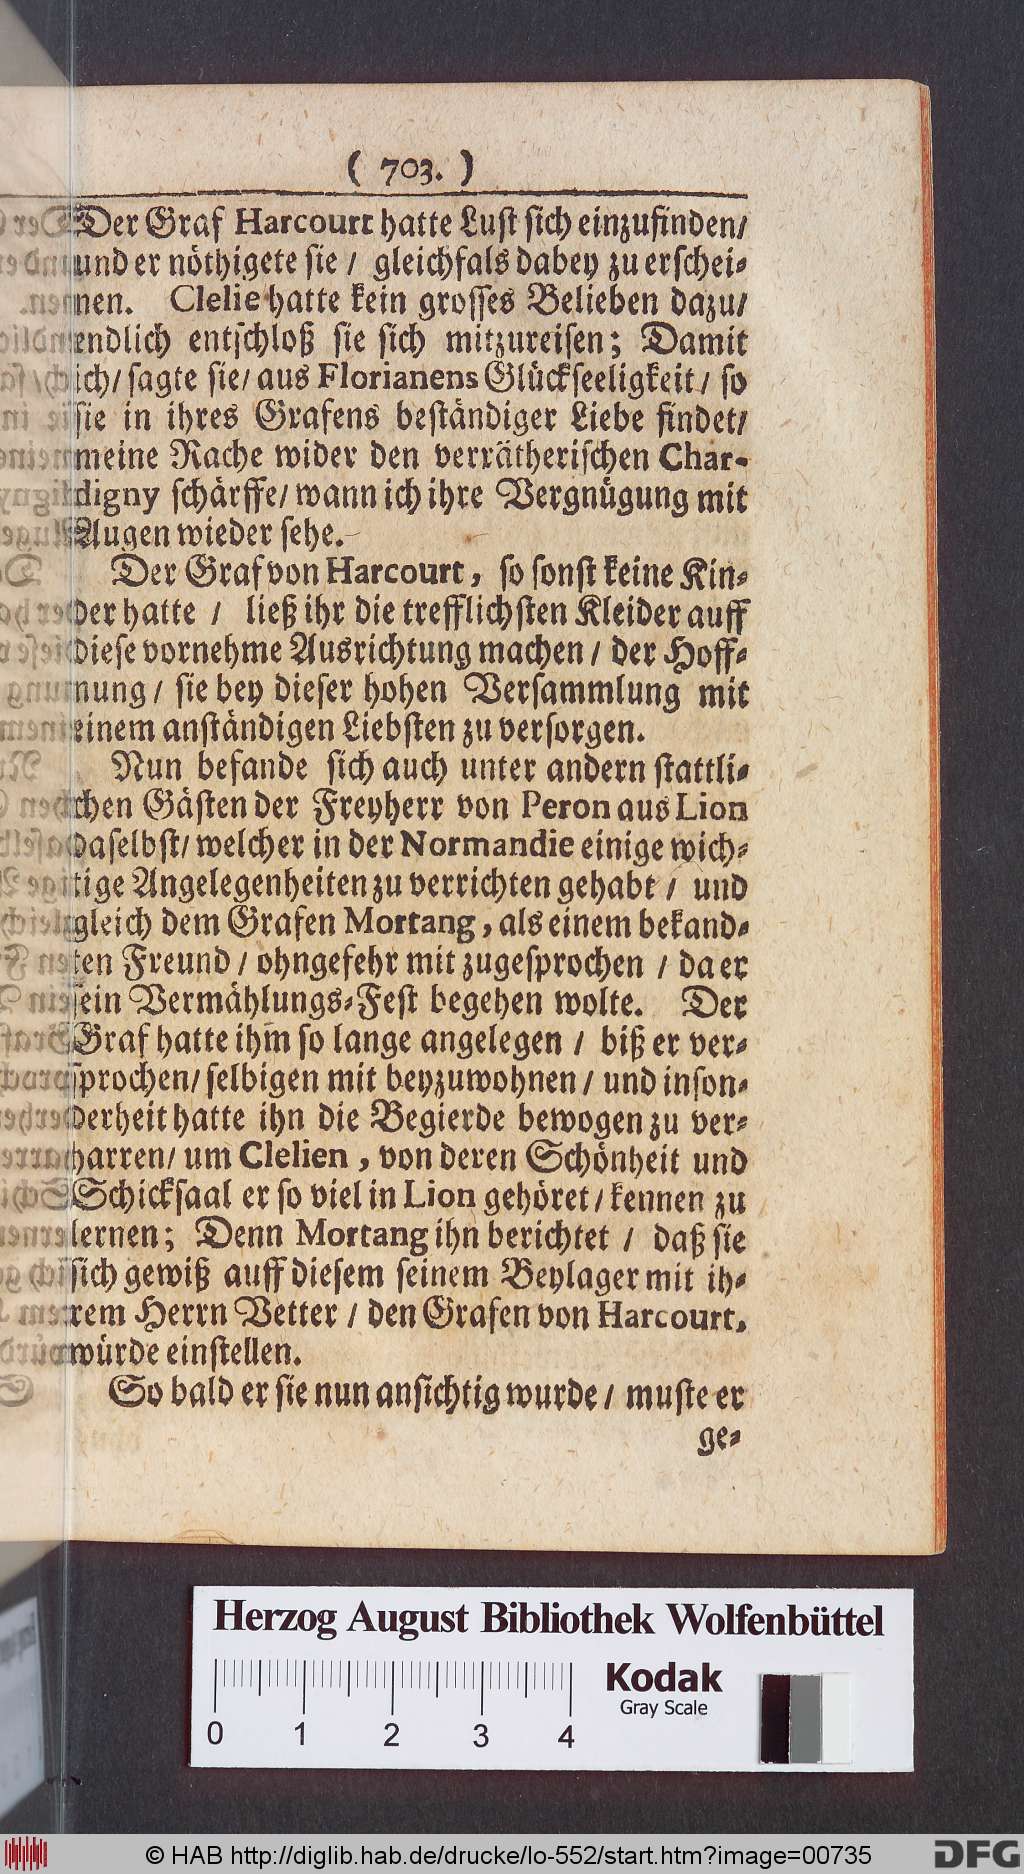 ( 703. )
Der Graf Harcourt hatte Lust sich einzufinden/
und er nöthigete sie / gleichfals dabey zu erschei-
nen. Clelie hatte kein grosses Belieben dazu/
endlich entschloß sie sich mitzureisen; Damit
ich/ sagte sie/ aus Florianens Glückseeligkeit/ so
sie in ihres Grafens beständiger Liebe findet/
meine Rache wider den verrätherischen Char-
digny schärffe/ wann ich ihre Vergnügung mit
Augen wieder sehe.
Der Graf von Harcourt, so sonst keine Kin-
der hatte / ließ ihr die trefflichsten Kleider auff
diese vornehme Ausrichtung machen / der Hoff-
nung / sie bey dieser hohen Versammlung mit
einem anständigen Liebsten zu versorgen.
Nun befande sich auch unter andern stattli-
chen Gästen der Freyherr von Peron aus Lion
daselbst/ welcher in der Normandie einige wich-
tige Angelegenheiten zu verrichten gehabt / und
gleich dem Grafen Mortang, als einem bekand-
ten Freund / ohngefehr mit zugesprochen / da er
sein Vermählungs-Fest begehen wolte. Der
Graf hatte ihm̃ so lange angelegen / biß er ver-
sprochen/ selbigen mit beyzuwohnen / und inson-
derheit hatte ihn die Begierde bewogen zu ver-
harren/ um Clelien, von deren Schönheit und
Schicksaal er so viel in Lion gehöret / kennen zu
lernen; Denn Mortang ihn berichtet / daß sie
sich gewiß auff diesem seinem Beylager mit ih-
rem Herrn Vetter / den Grafen von Harcourt,
würde einstellen.
So bald er sie nun ansichtig wurde / muste er
ge-
Herzog August Bibliothek Wolfenbüttel
Kodak
Gray Scale
0 1 2 3 4
© HAB http://diglib.hab.de/drucke/lo-552/start.htm?image=00735
DFG